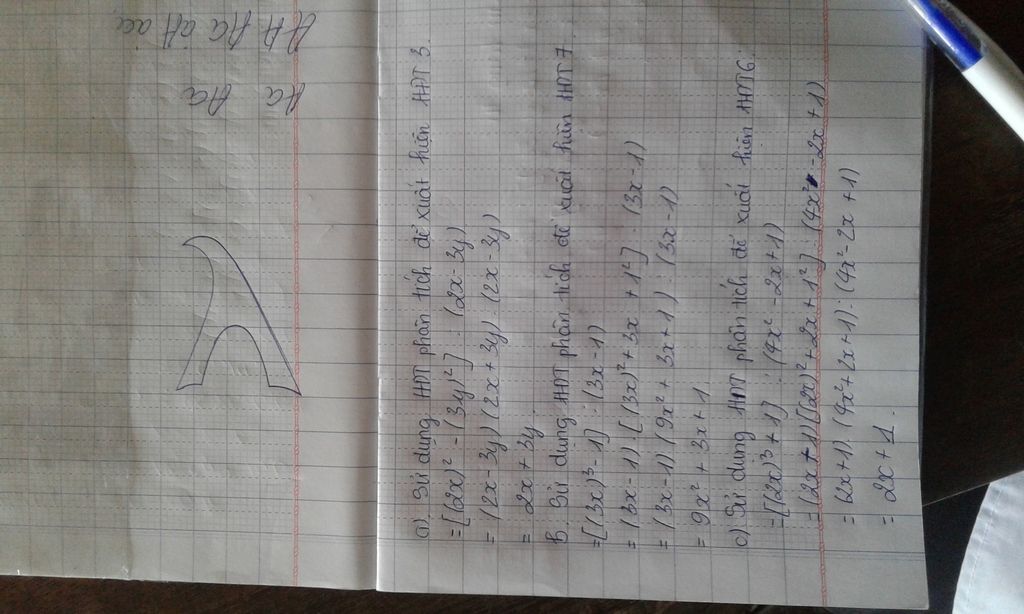 AA Aa aA aa
Aa Aa
a). Sử dụng HĐT phân tích để xuất hiện HĐT 3.
= [(2x)² - (3y)²] : (2x - 3y)
= (2x - 3y) (2x + 3y) : (2x - 3y)
= 2x + 3y.
b. Sử dụng HĐT phân tích để xuất hiện HĐT 7.
= [(3x)³ - 1] : (3x - 1)
= (3x - 1) . [(3x)² + 3x + 1²] : (3x - 1)
= (3x - 1) (9x² + 3x + 1) : (3x - 1)
= 9x² + 3x + 1
c) Sử dụng HĐT phân tích để xuất hiện HĐT 6.
= [(2x)³ + 1] : (4x² - 2x + 1)
= (2x + 1) [(2x)² + 2x + 1²] : (4x² - 2x + 1)
= (2x + 1) . (4x² + 2x + 1) : (4x² - 2x + 1)
= 2x + 1.